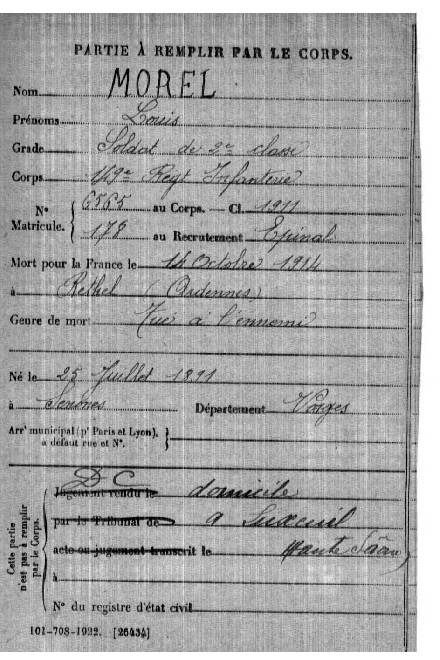 PARTIE À REMPLIR PAR LE CORPS.
Nom MOREL
Prénoms Louis
Grade Soldat de 2me classe
Corps 149e Regt Infanterie
Nº Matricule. { 6565 au Corps. — Cl. 1911
178 au Recrutement Epinal
Mort pour la France le 14 Octobre 1914
à Rethel (Ardennes)
Genre de mort Tué à l'ennemi
Né le 25 Juillet 1891
à Senones Département Vosges
Arrt municipal (pr Paris et Lyon), à défaut rue et Nº. }
Cette partie n'est pas à remplir par le Corps.
D C
Jugement rendu le domicile
par le Tribunal de a Luxeuil
acte ou jugement transcrit le Haute Saône)
à
Nº du registre d'état civil
101-708-1922. [26434]